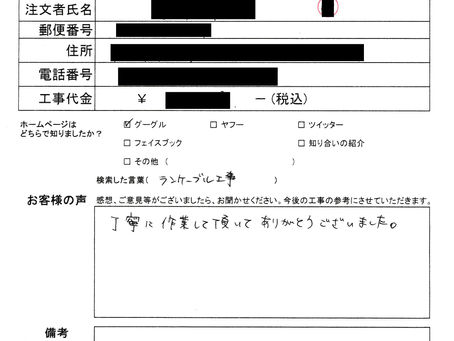 注文者氏名
郵便番号
住所
電話番号
工事代金 ¥ ー(税込)
ホームページは
どちらで知りましたか?
☑ グーグル □ ヤフー □ ツイッター
□ フェイスブック □ 知り合いの紹介
□ その他 ( )
検索した言葉( ランケーブル工事 )
お客様の声 感想、ご意見等がございましたら、お聞かせください。今後の工事の参考にさせていただきます。
丁寧に作業して頂いてありがとうございました。
備考